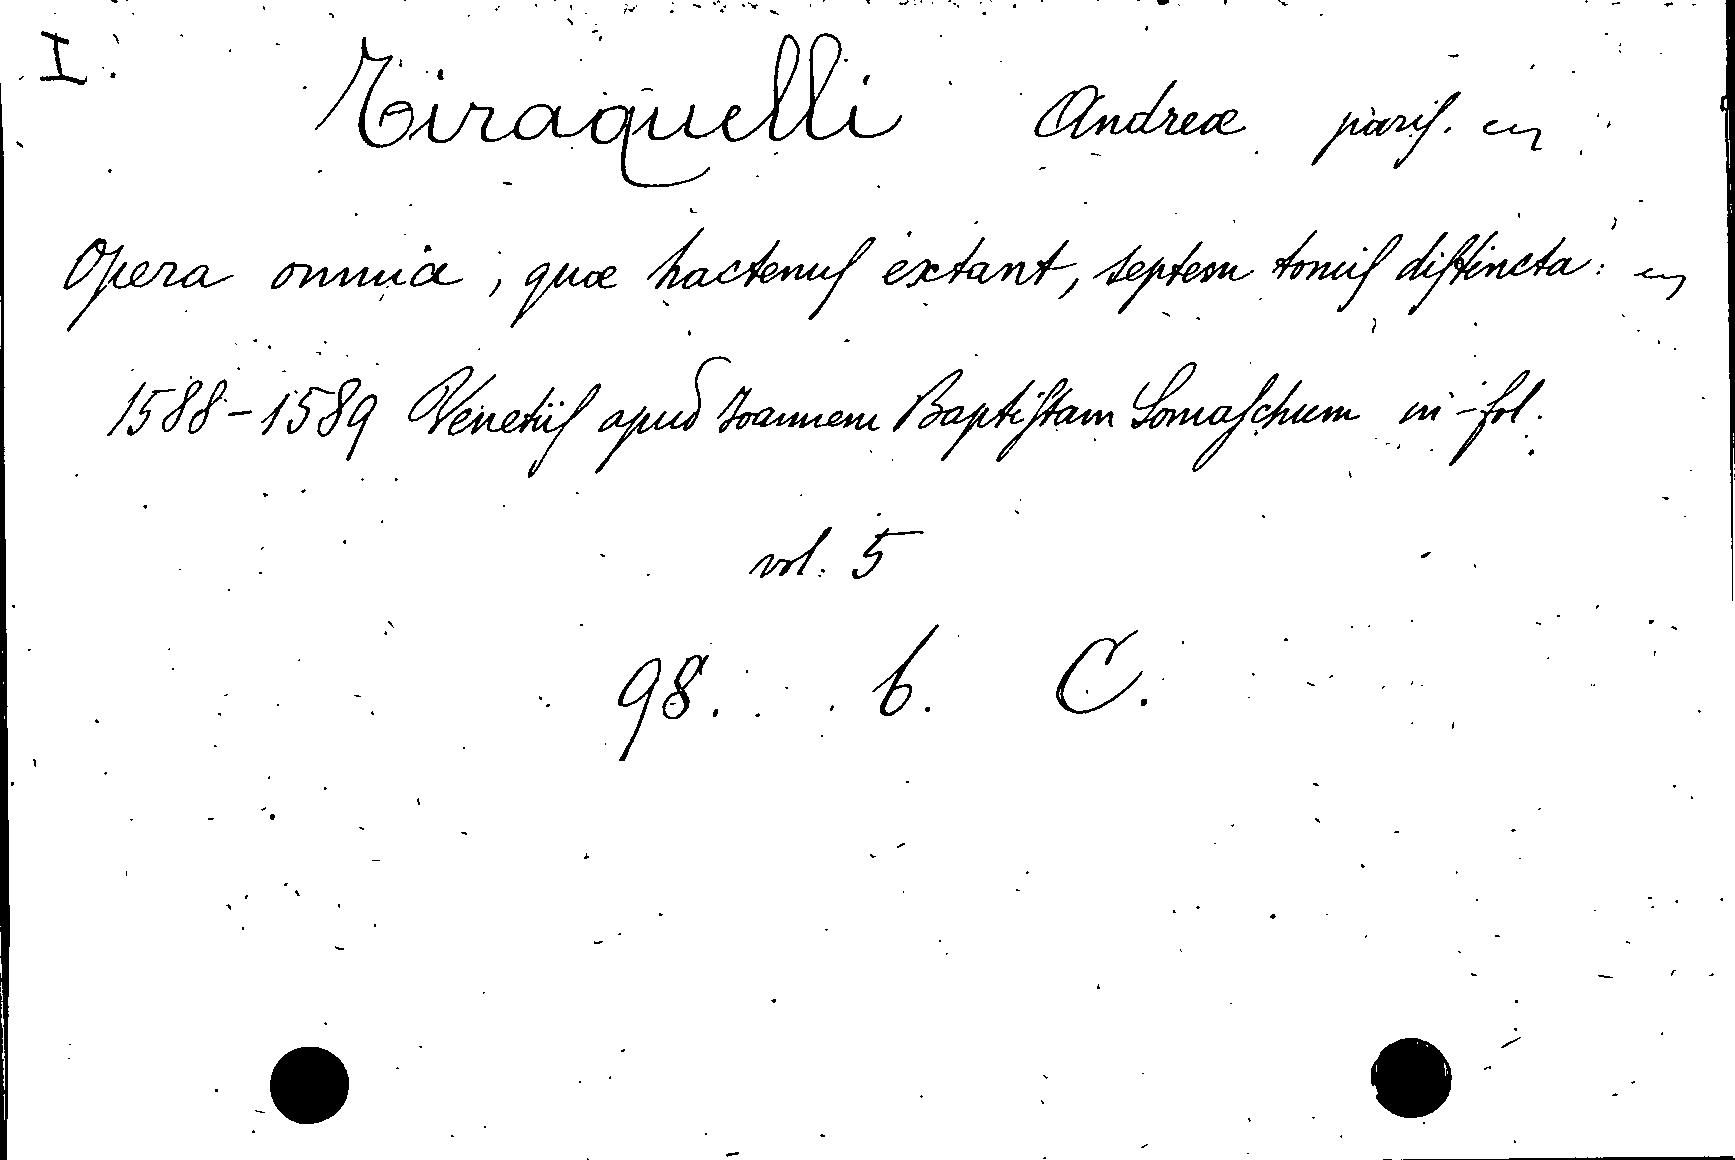 I.
Tiraquelli Andreæ paris. ~
Opera omnia, quæ hactenus extant, septem tomis distincta: ~
1588-1589 Venetiis apud Joannem Baptistam Somaschum in-fol.
vol. 5
98. b. C.